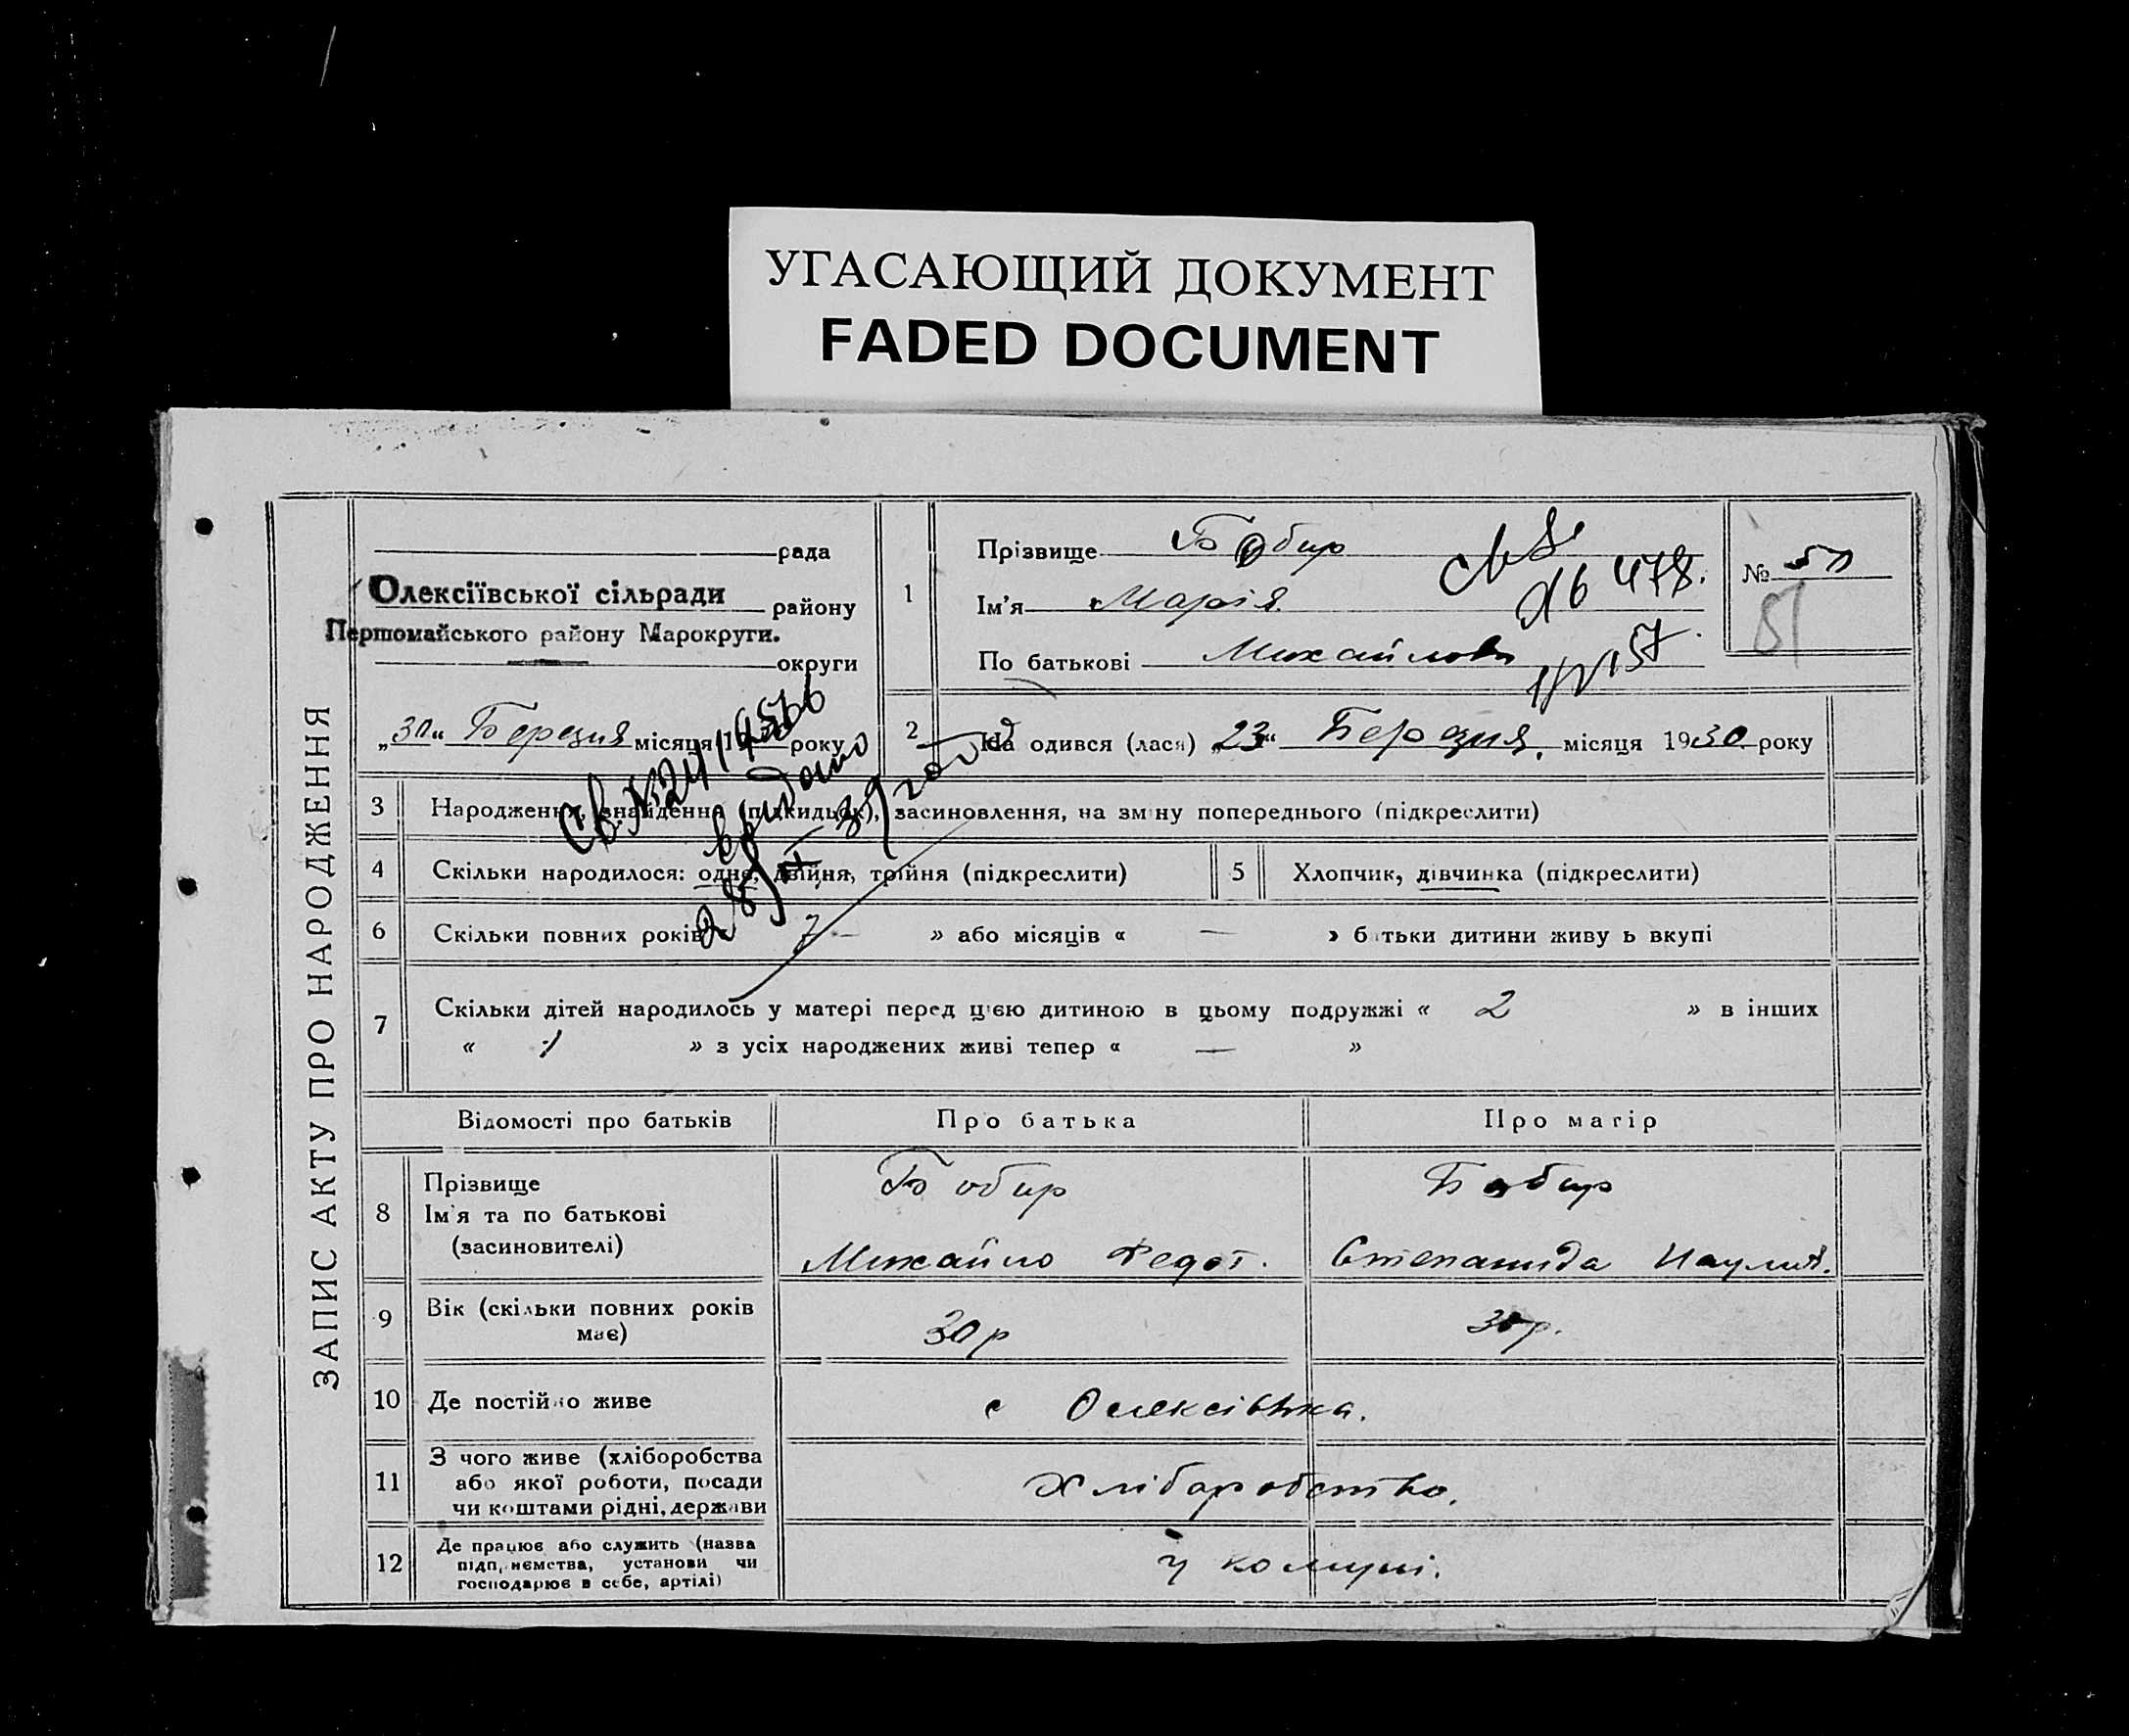 УГАСАЮЩИЙ ДОКУМЕНТ
FADED DOCUMENT
ЗАПИС АКТУ ПРО НАРОДЖЕННЯ
рада
Олексіївської сільради
району
Першомайського району Марокруги.
округи
„30“ Березня місяця 19 року
1
Прізвище Бобир
Ім’я Марія
По батькові Михайлов
№ 50
51
2 На одився (лася) „23“ Березня. місяця 1930 року
3 Народження, знайдення (підкидька), засиновлення, на зміну попереднього (підкреслити)
видано
4 Скільки народилося: одне, двійня, трійня (підкреслити)
5 Хлопчик, дівчинка (підкреслити)
6 Скільки повних років « 7 — » або місяців « — » батьки дитини живуть вкупі
7 Скільки дітей народилось у матері перед цією дитиною в цьому подружжі « 2 » в інших
« » з усіх народжених живі тепер « — »
Відомості про батьків
Про батька
Про матір
8
Прізвище
Ім’я та по батькові
(засиновителі)
Бобир
Михайло Федот.
Бобир
Степанида
9
Вік (скільки повних років
має)
30 р
30 р.
10 Де постійно живе
с Олексіївка.
11
З чого живе (хліборобства
або якої роботи, посади
чи коштами рідні, держави
Хліборобство.
12
Де працює або служить (назва
підприємства, установи чи
господарює в себе, артілі)
у комуні.